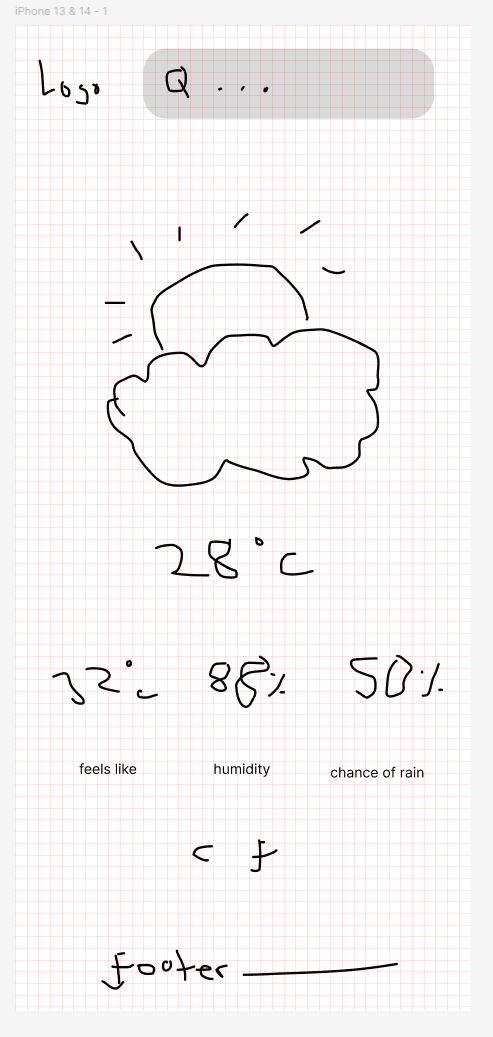 iPhone 13 & 14 - 1
Logo Q ...
28°c
32°c 88% 50%
feels like humidity chance of rain
c f
footer